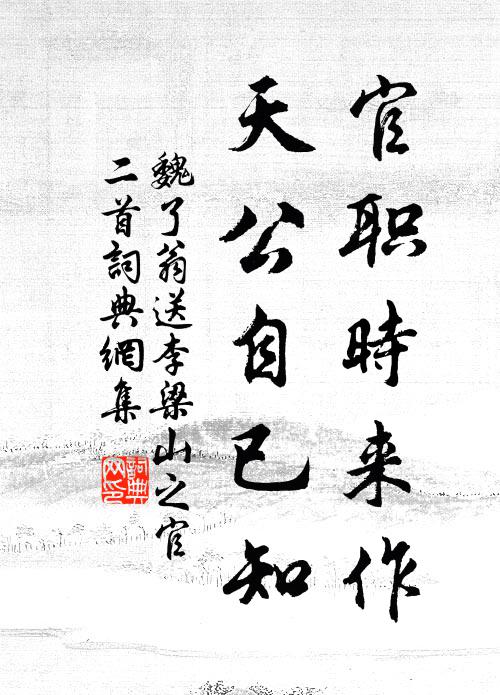 官职時来作
天公自已知
魏了翁送李梁山之官
二首詞典網集
詞典網印